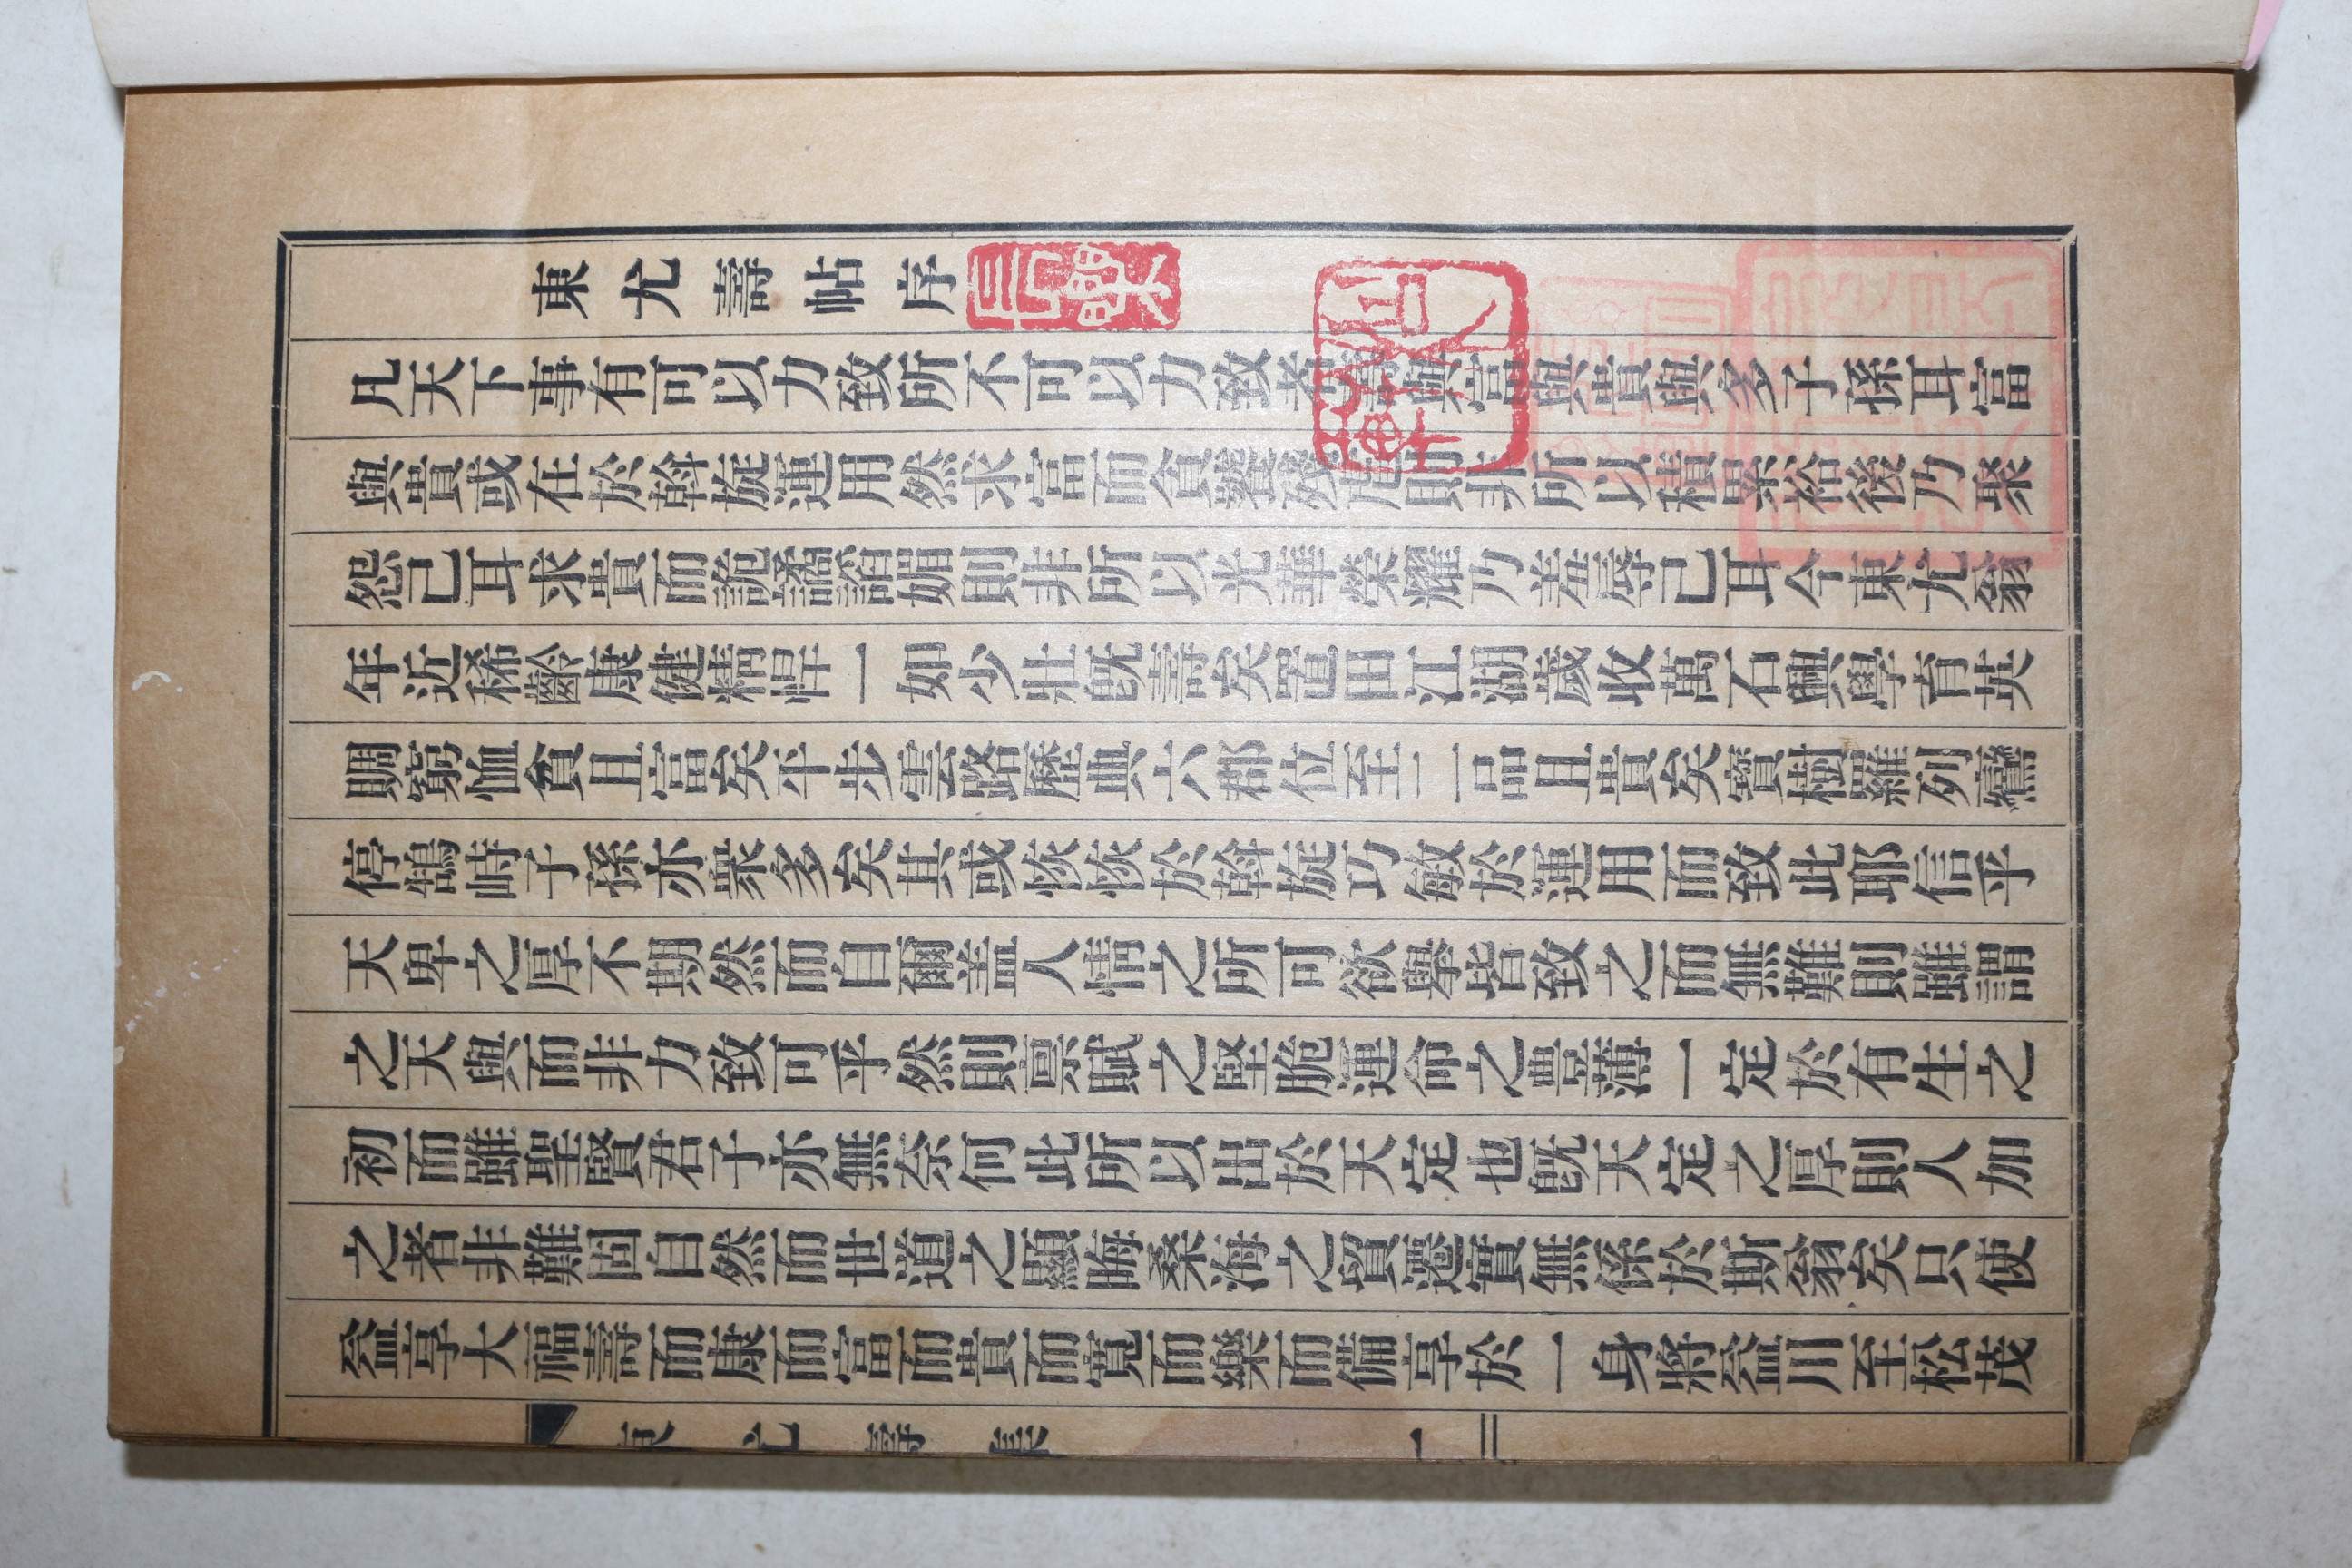 東尤壽帖序
凡天下事有可以力致所不可以力致者壽與富與貴與多子孫耳富
與貴或在於斡旋運用然求富而貪饕殘虐則非所以積累裕後乃聚
怨己耳求貴而詭譎謟媚則非所以光華榮耀乃羞辱己耳今東尤翁
年近稀齡康健精悍一如少壯旣壽矣置田江湖歲收萬石興學育英
賙窮恤貧且富矣平步雲路歷典六郡位至二品且貴矣寶樹羅列鸞
停鵠峙子孫亦衆多矣其或恢恢於斡旋巧敏於運用而致此耶信乎
天卑之厚不期然而自爾盖人情之所可欲擧皆致之而無難則雖謂
之天與而非力致可乎然則禀賦之堅脆運命之豊薄一定於有生之
初而雖聖賢君子亦無奈何此所以出於天定也旣天定之厚則人加
之者非難固自然而世道之顯晦桑海之貿遷實無係於斯翁矣只使
益享大福壽而康而富而貴而寬而樂而備享於一身將益川至松茂
東尤壽集
一